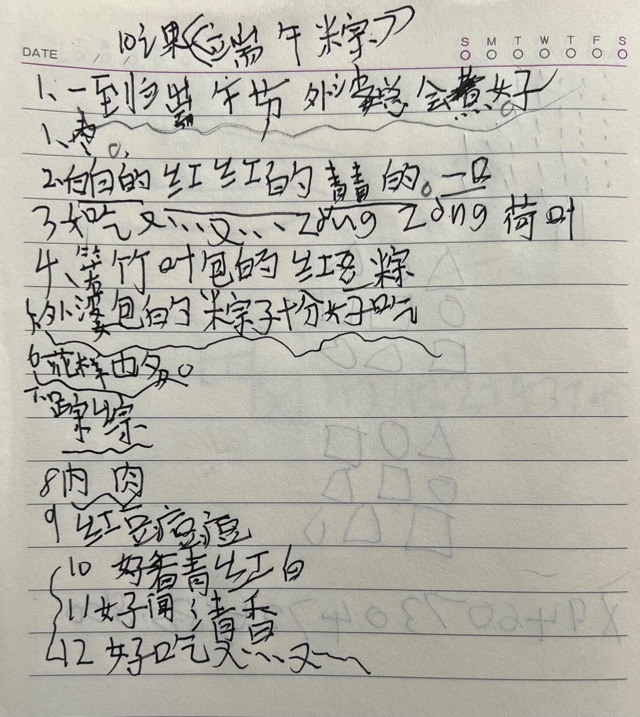 DATE S M T W T F S
10课《端午粽》
1、一到端午节 外婆总会煮好
1、枣。
2、白白的 红红的 青青的。一口
3 好吃又……又…… zòng zòng 荷叶
4、箬竹叶包的红豆粽
5、外婆包的粽子十分好吃
6 花样也多。
7、粽
8 内 肉
9 红豆
10 好看青红白
11 好闻 清香
12 好吃又……又